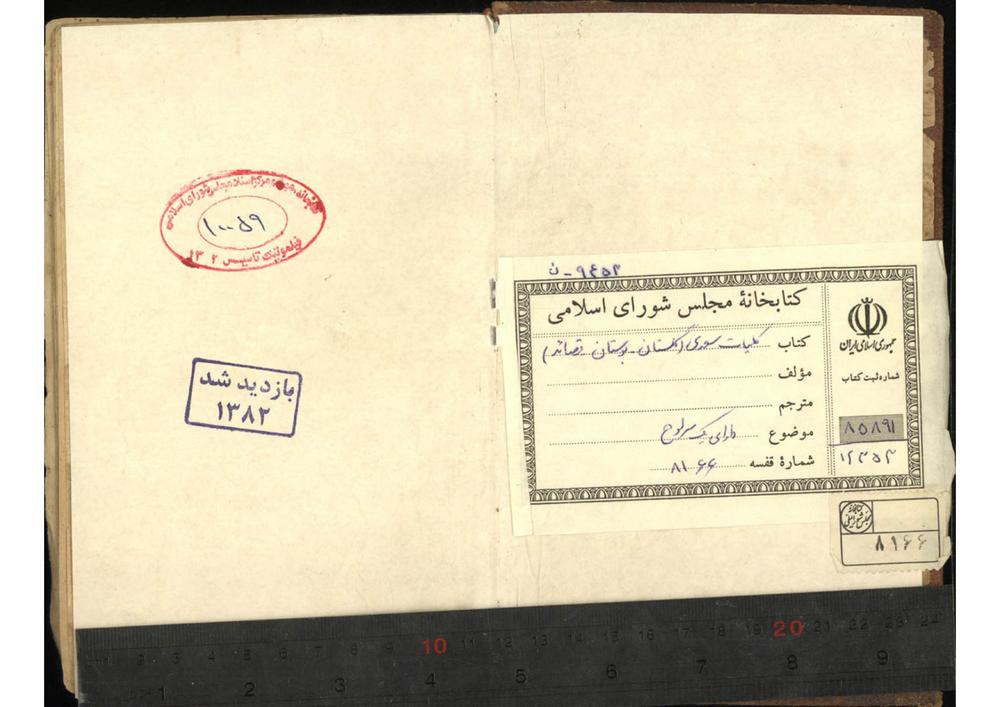 کتابخانه، موزه و مرکز اسناد مجلس شورای اسلامی
۱۰۰۵۹
تاسیس ۱۳۰۲
بازدید شد
۱۳۸۲
ن - ۹۴۵۳
کتابخانهٔ مجلس شورای اسلامی
کتاب کلیات سعدی (گلستان - بوستان - قصائد)
مؤلف
مترجم
موضوع دارای یک سرلوح
شمارهٔ قفسه ۸۱۶۶
جمهوری اسلامی ایران
شماره ثبت کتاب
۸۵۸۹۱
۱۲۳۵۳
۸۱۶۶
10 11 12 13 14 15 16 17 18 19 20 21 22 23 24
1 2 3 4 5 6 7 8 9